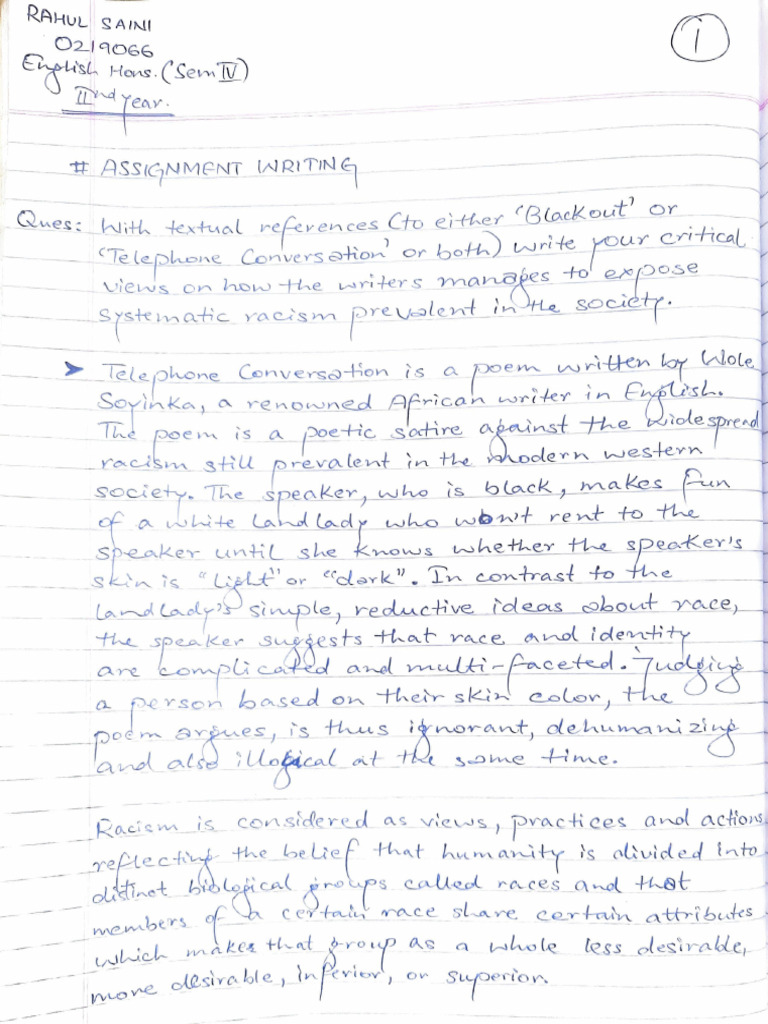 RAHUL SAINI
0219066
English Hons. (Sem IV)
IInd year.
1
# ASSIGNMENT WRITING
Ques: With textual references (to either 'Blackout' or
'Telephone Conversation' or both) write your critical
views on how the writers manages to expose
systematic racism prevalent in the society.
➤ Telephone Conversation is a poem written by Wole
Soyinka, a renowned African writer in English.
The poem is a poetic satire against the widespread
racism still prevalent in the modern western
society. The speaker, who is black, makes fun
of a white landlady who won't rent to the
speaker until she knows whether the speaker's
skin is "light" or "dark". In contrast to the
landlady's simple, reductive ideas about race,
the speaker suggests that race and identity
are complicated and multi-faceted. Judging
a person based on their skin color, the
poem argues, is thus ignorant, dehumanizing
and also illogical at the same time.
Racism is considered as views, practices and actions
reflecting the belief that humanity is divided into
distinct biological groups called races and that
members of a certain race share certain attributes
which makes that group as a whole less desirable,
more desirable, inferior, or superior.